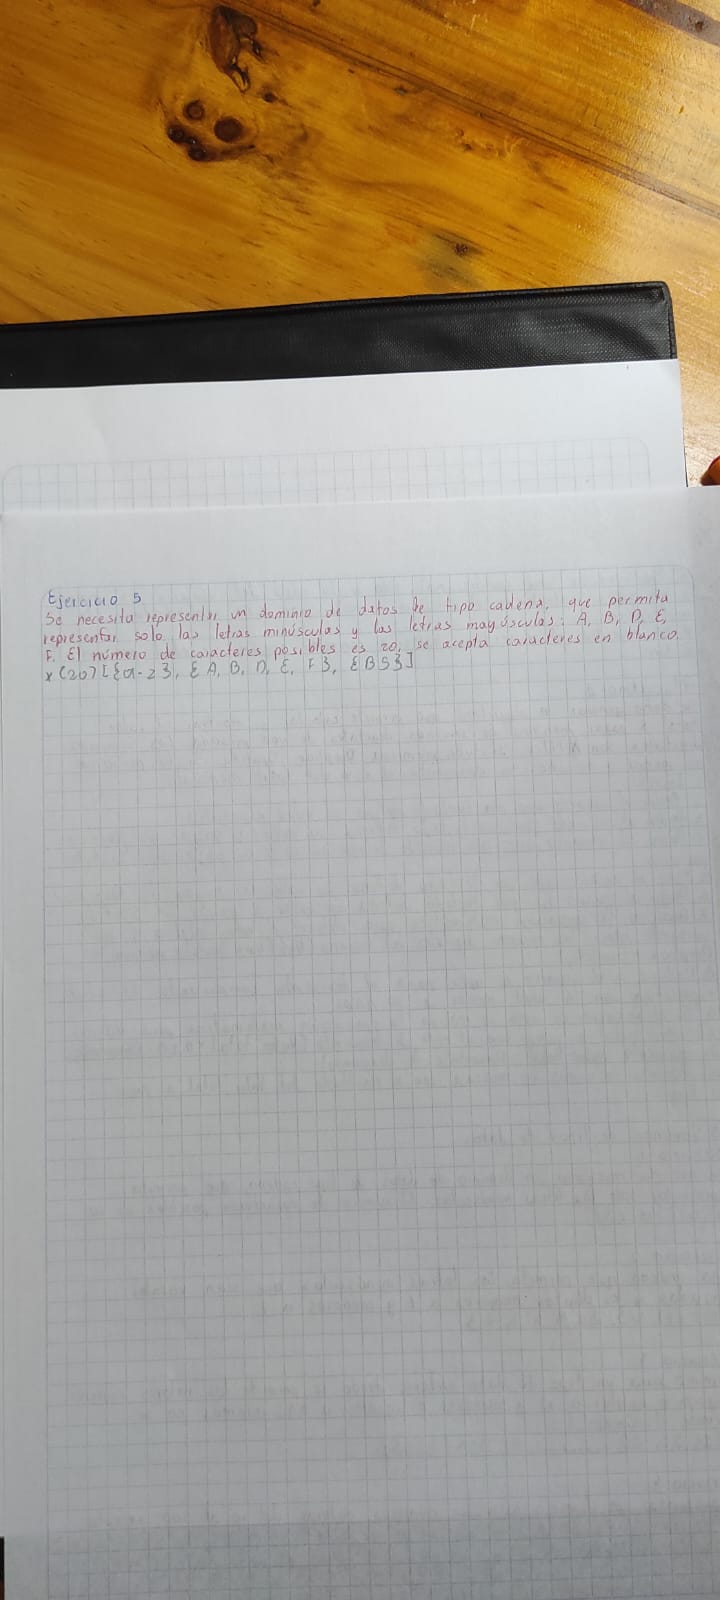 Ejercicio 5
Se necesita representar un dominio de datos de tipo cadena, que permita
representar solo las letras minúsculas y las letras mayúsculas: A, B, D, E,
F. El número de caracteres posibles es 20, se acepta caracteres en blanco.
x(20)[{a-z}, {A, B, D, E, F}, {BS}]